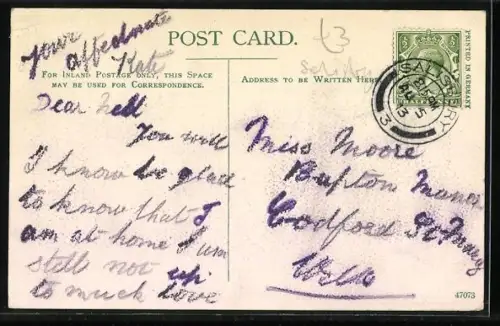 Your
affectionate
Kate
POST CARD.
FOR INLAND POSTAGE ONLY, THIS SPACE
MAY BE USED FOR CORRESPONDENCE.
ADDRESS TO BE WRITTEN HERE
£3
PRINTED IN GERMANY
SALISBURY
5
13
3
Dear Nell
You will
I know be glad
to know that I
am at home I am
still not up
to much love
Miss Moore
Bapton Manor
Codford St Mary
Wilts
47073